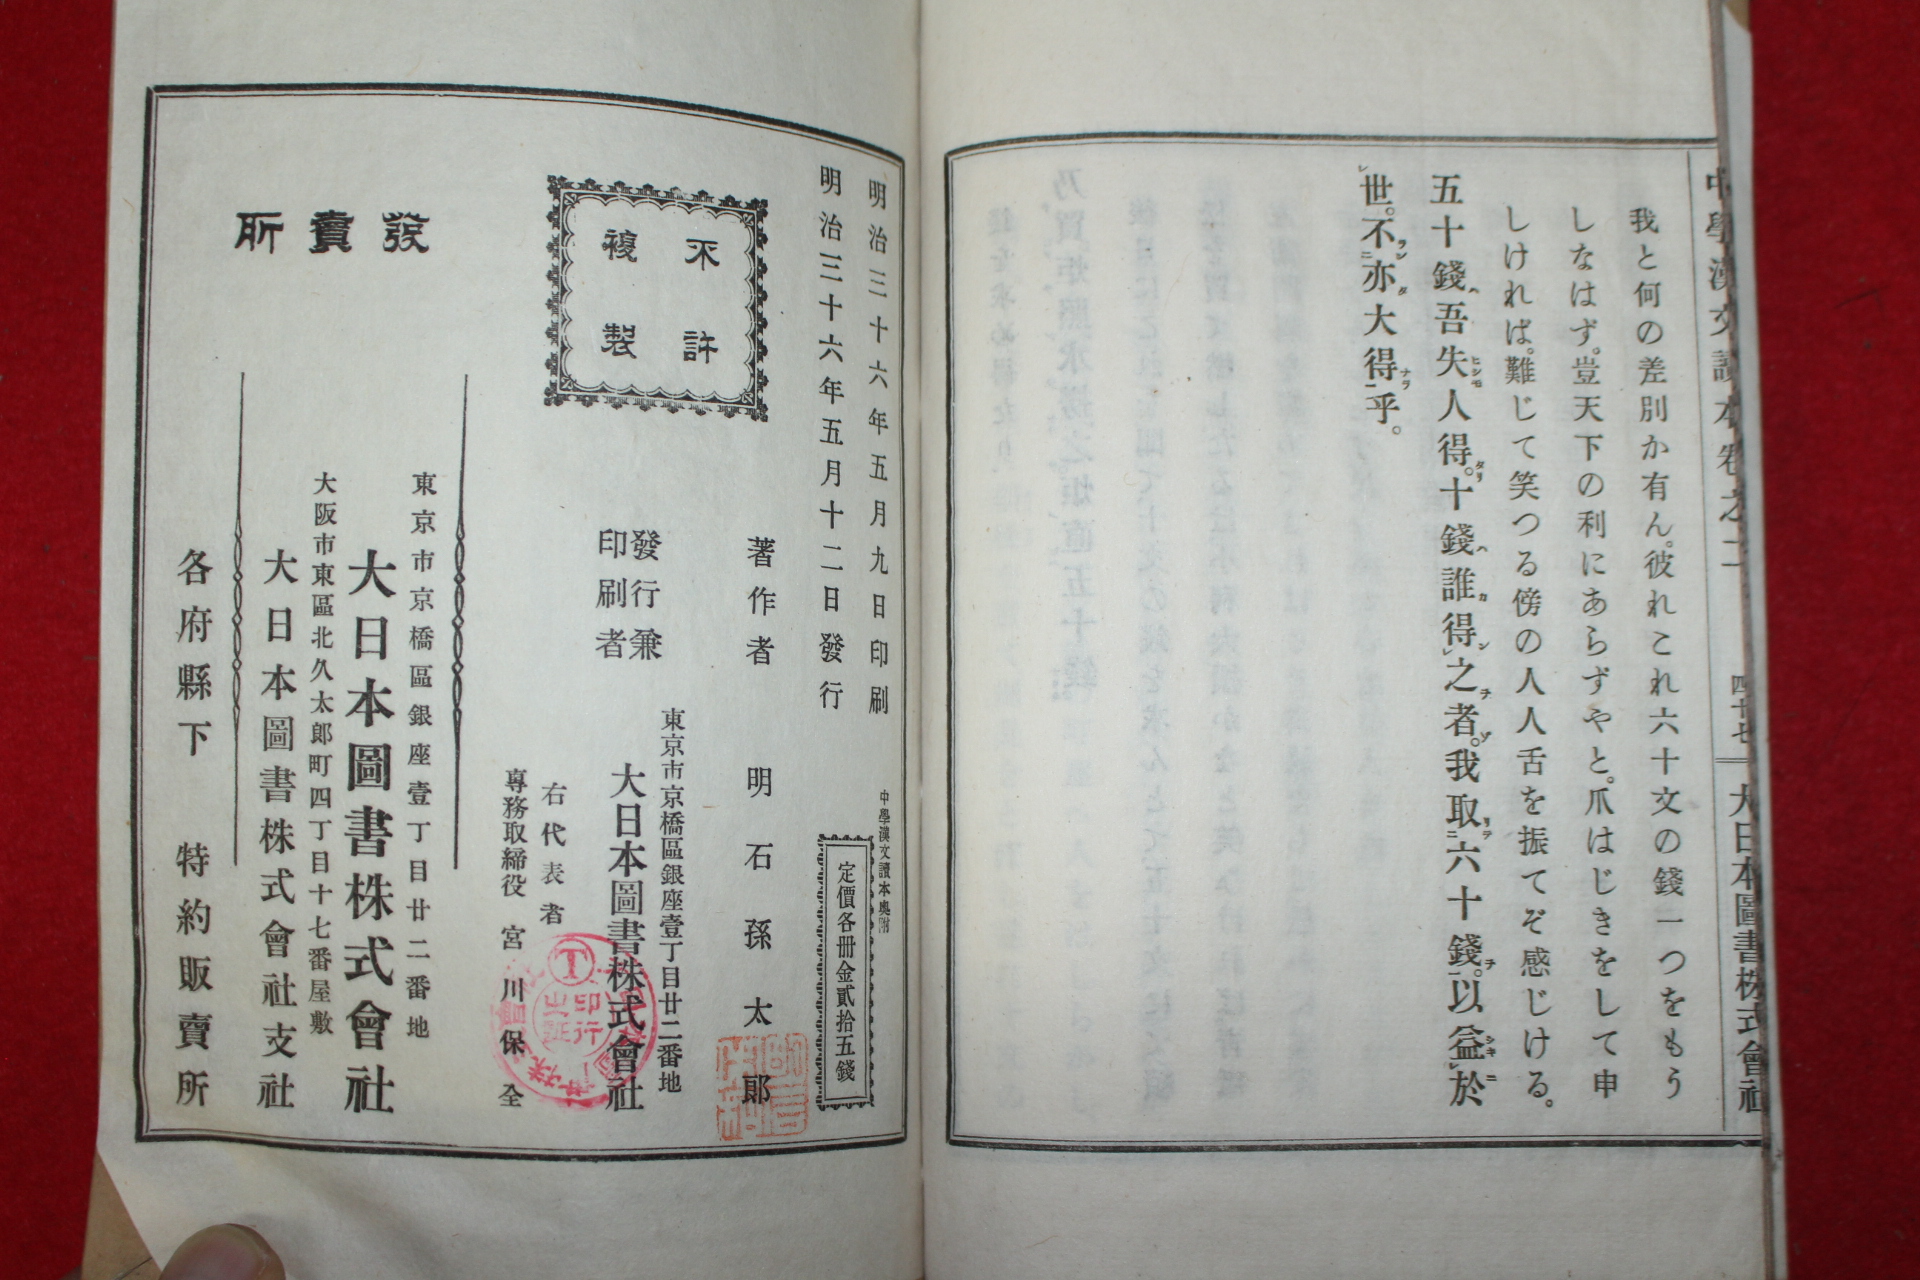 中學漢文讀本卷之二
四十七
大日本圖書株式會社
我と何の差別か有ん。彼れこれ六十文の錢一つをもう
しなはず。豈天下の利にあらずやと。爪はじきをして申
しければ。難じて笑つる傍の人人舌を振てぞ感じける。
五十錢吾失人得。十錢誰得之者。我取六十錢。以益於
世。不亦大得乎。
明治三十六年五月九日印刷
明治三十六年五月十二日發行
中學漢文讀本奧附
定價各冊金貳拾五錢
不許
複製
著作者 明石孫太郎
發行兼
印刷者
東京市京橋區銀座壹丁目廿二番地
大日本圖書株式會社
右代表者
專務取締役 宮川保全
發賣所
東京市京橋區銀座壹丁目廿二番地
大日本圖書株式會社
大阪市東區北久太郎町四丁目十七番屋敷
大日本圖書株式會社支社
各府縣下 特約販賣所